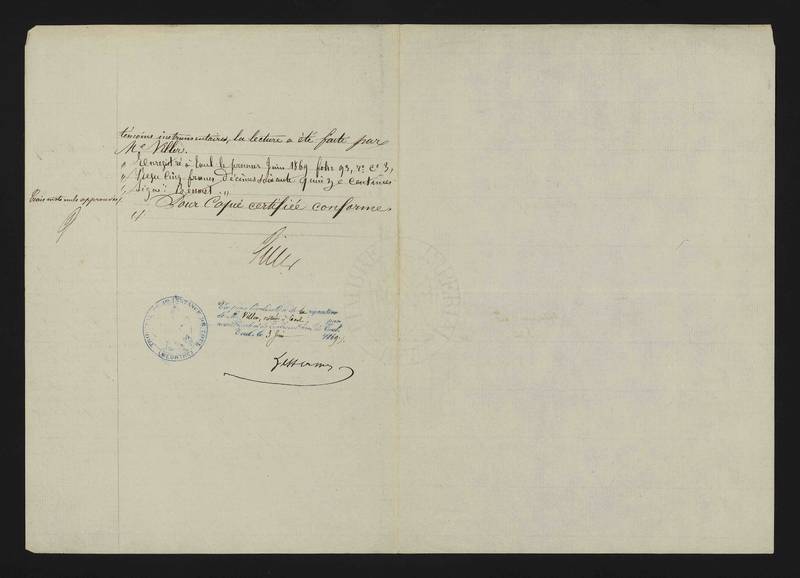 témoins instrumentaires, la lecture a été faite par
Me Viller.
" Enregistré à Toul le premier Juin 1869 folio 93, Vo Co 3,
" Reçu cinq francs Décimes soixante quinze centimes
" Signé: Benoit "
Trois mots nuls approuvés
Pour Copie certifiée conforme
Viller
TRIBUNAL DE 1ère INSTANCE DE TOUL
(MEURTHE)
Vu pour légalisation de la signature
de Me Viller, notaire à Toul, par
Toul, le 3 Juin 1869.